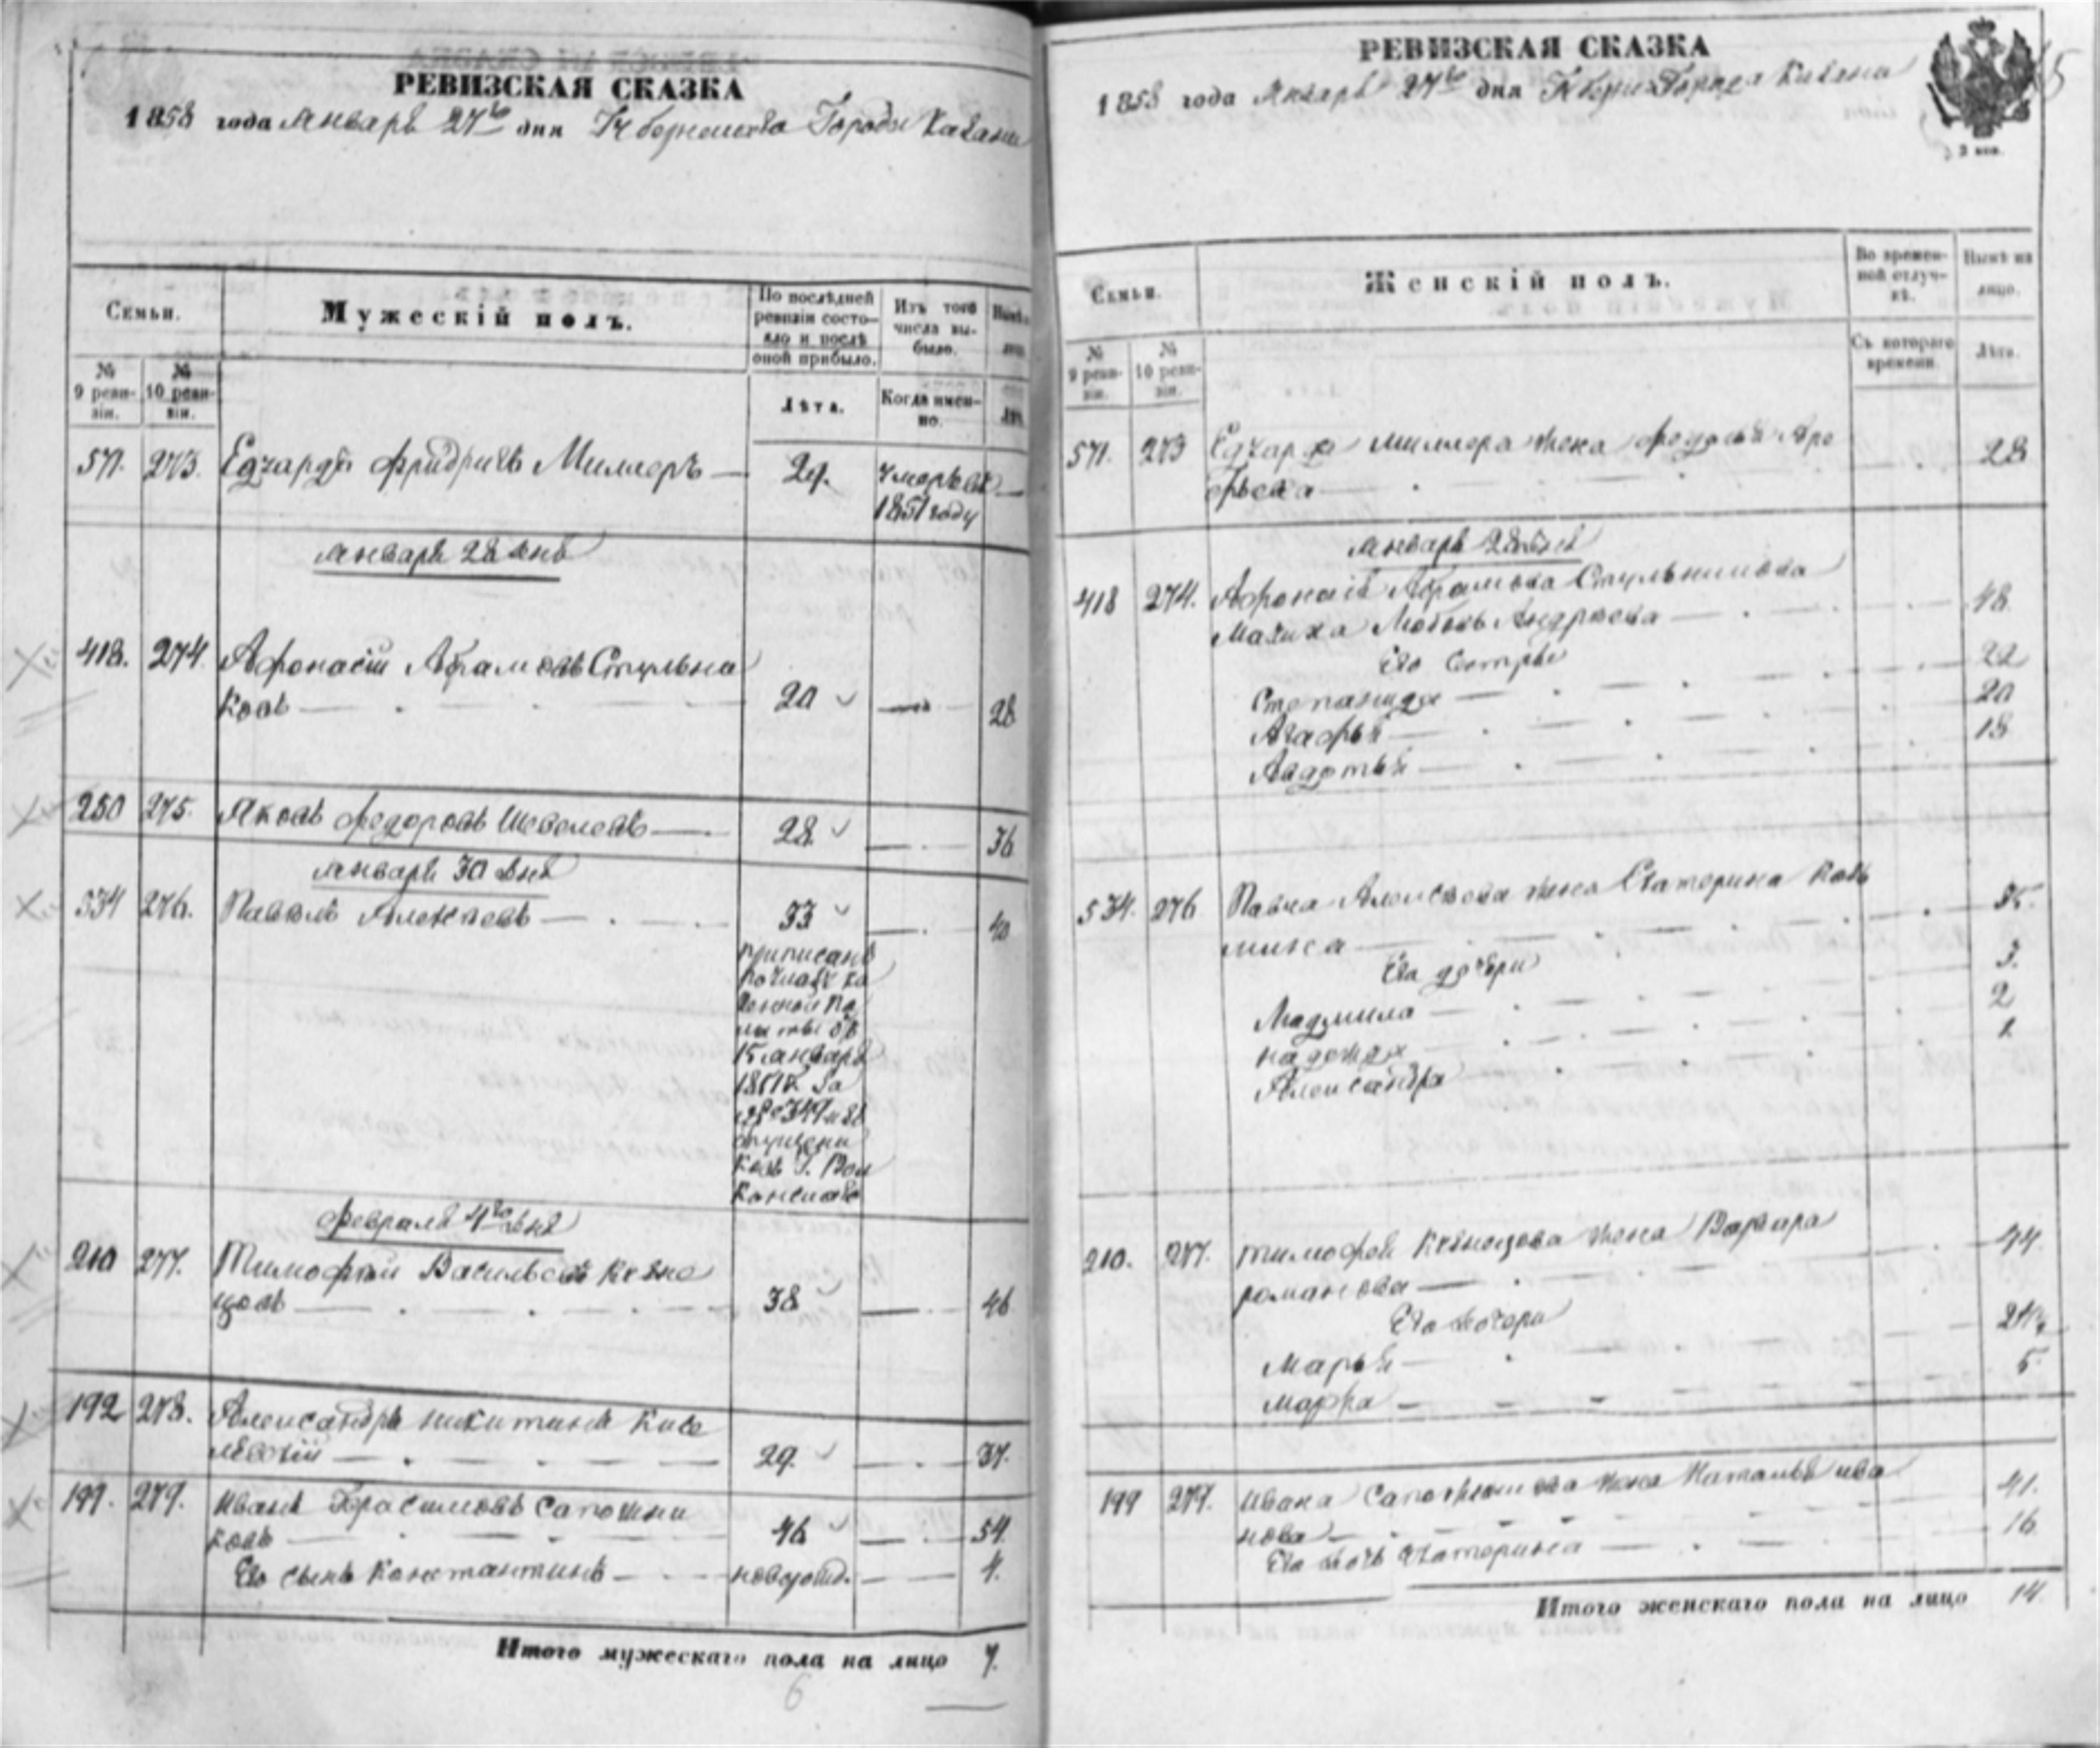 РЕВИЗСКАЯ СКАЗКА
1858 года Января 27го дня Губернскаго Города Казани
Семьи.
Мужескій полъ.
По послѣдней ревизіи состояло и послѣ оной прибыло.
Изъ того числа выбыло.
№ 9 ревизіи.
№ 10 ревизіи.
Лѣта.
Когда именно.
571. 273. Едуардъ Фридрихъ Миллеръ — 29. умеръ въ
1851 году
Января 28 дня
418. 274. Афонасій Абрамовъ Стульни
ковъ — 20 — 28
250 275. Яковъ Федоровъ Шевелевъ — 28 — 36
Января 30 дня
534 276. Павелъ Алексѣевъ — 33 — 40
приписанъ
по указу Ка
зенной Па
латы отъ
15 Января
за
Февраля 4го дня
210 277. Тимофей Васильевъ Кузне
цовъ — 38 — 46
192 278. Александръ Никитинъ Кисе
— 29. — 37.
199. 279. Иванъ Герасимовъ Сапожни
ковъ — 46 — 54.
Его сынъ Константинъ — новорожд. — 4.
Итого мужескаго пола на лицо 7.
6
РЕВИЗСКАЯ СКАЗКА
1858 года Января 27го дня Города Казани
3 коп.
Семьи.
Женскій полъ.
Во временной отлучкѣ.
Нынѣ на лицо.
№ 9 ревизіи.
№ 10 ревизіи.
Съ котораго времени.
Лѣта.
571. 273 Едуарда Миллера жена 28
Января 28 дня
418 274. Афонасія Абрамова Стульникова
Мачиха Любовь Андреева — 48.
Его сестры
Степанида — 22
Агафья — 20
Авдотья — 18
534. 276 Павла Алексѣева жена Екатерина Козь
мина — 35.
Его дочери
Людмила — 3.
Надежда — 2
Александра — 1.
210. 277. Тимофея Кузнецова жена Варвара
Романова — 44.
Его дочери
Марья —
Марфа — 5.
199 279. Ивана Сапожникова жена Наталья Ива
нова — 41.
Его дочь Катерина — 16
Итого женскаго пола на лицо 14.